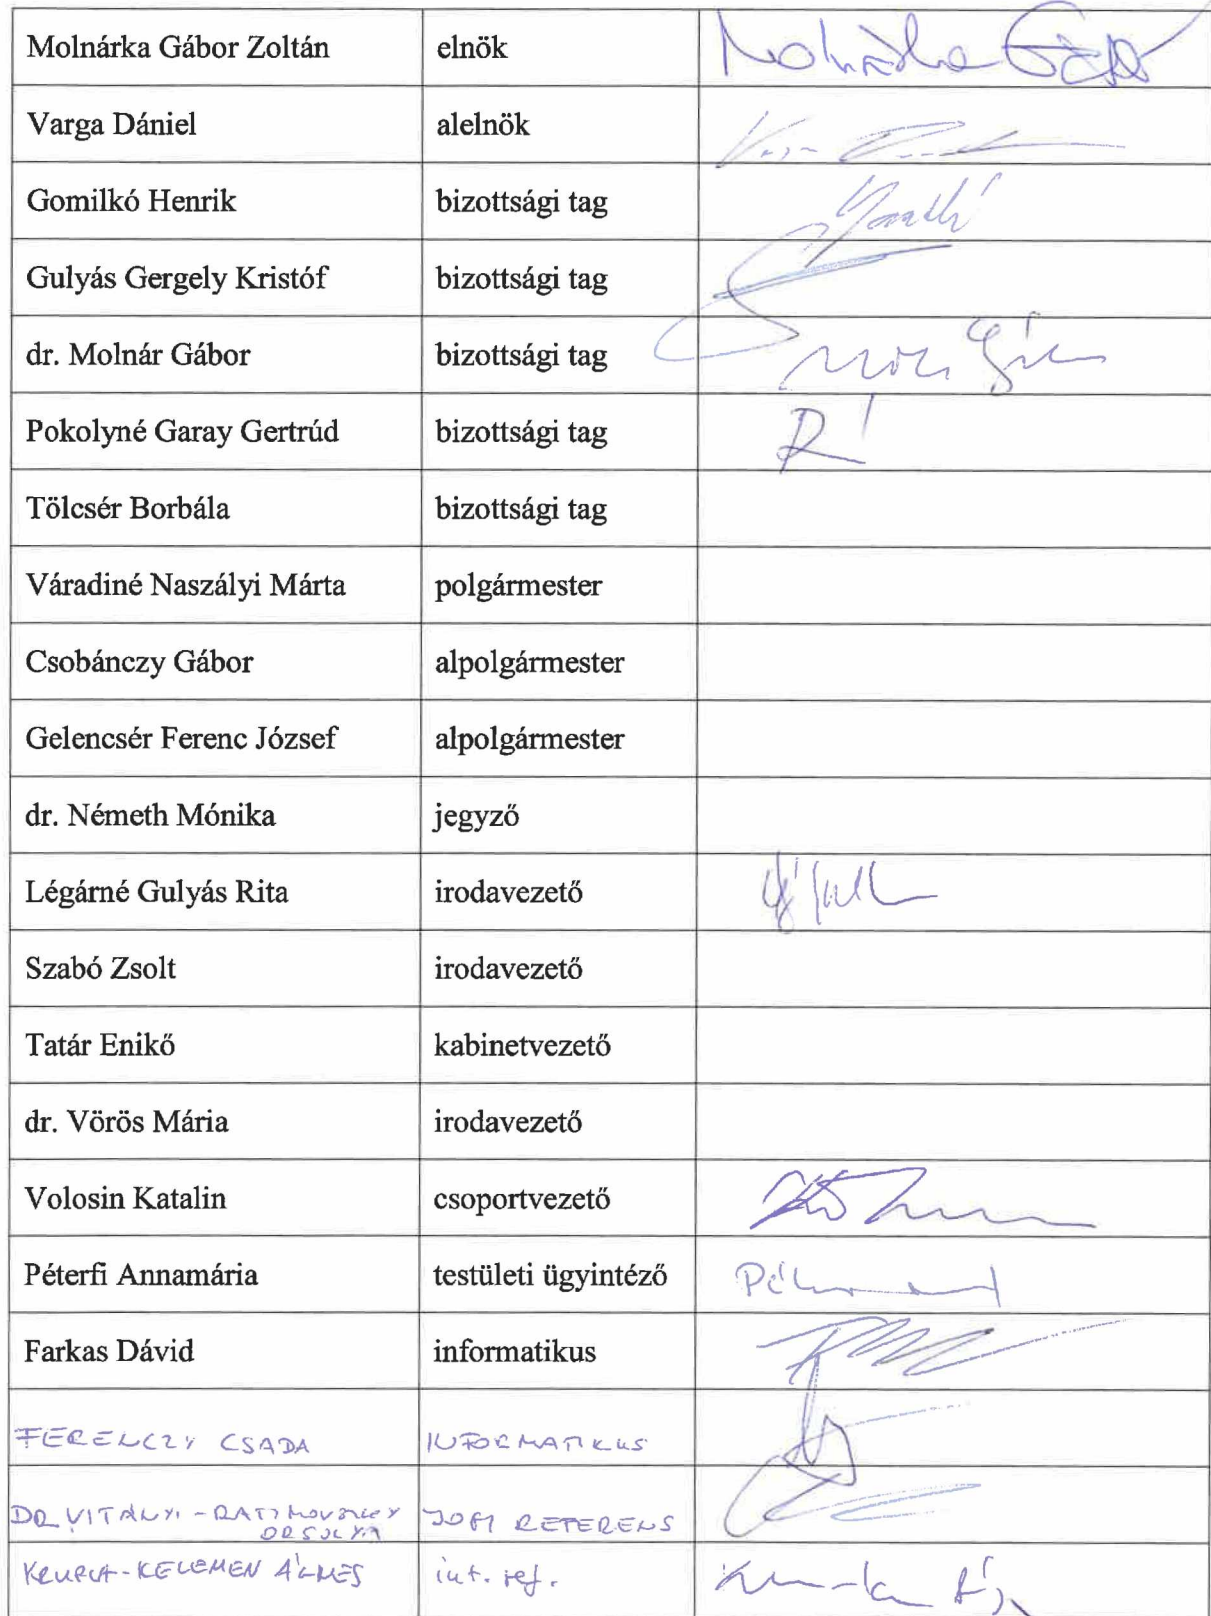 Molnárka Gábor Zoltán elnök Molnárka Gábor
Varga Dániel alelnök
Gomilkó Henrik bizottsági tag
Gulyás Gergely Kristóf bizottsági tag
dr. Molnár Gábor bizottsági tag
Pokolyné Garay Gertrúd bizottsági tag
Tölcsér Borbála bizottsági tag
Váradiné Naszályi Márta polgármester
Csobánczy Gábor alpolgármester
Gelencsér Ferenc József alpolgármester
dr. Németh Mónika jegyző
Légárné Gulyás Rita irodavezető
Szabó Zsolt irodavezető
Tatár Enikő kabinetvezető
dr. Vörös Mária irodavezető
Volosin Katalin csoportvezető
Péterfi Annamária testületi ügyintéző
Farkas Dávid informatikus
FERENCZY CSABA INFORMATIKUS
DR VITÁLYI - JOGI REFERENS
ORSOLYA
KELEMEN ÁGNES int. ref.